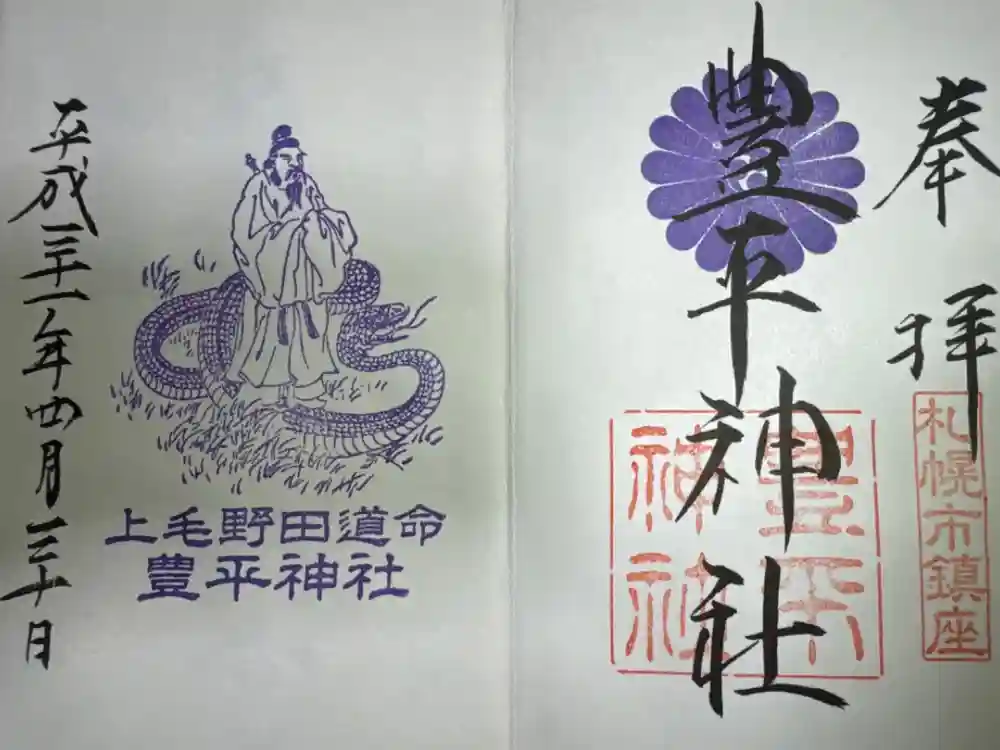 奉拝
札幌市鎮座
豊平神社
豊平神社
平成三十一年四月三十日
上毛野田道命
豊平神社